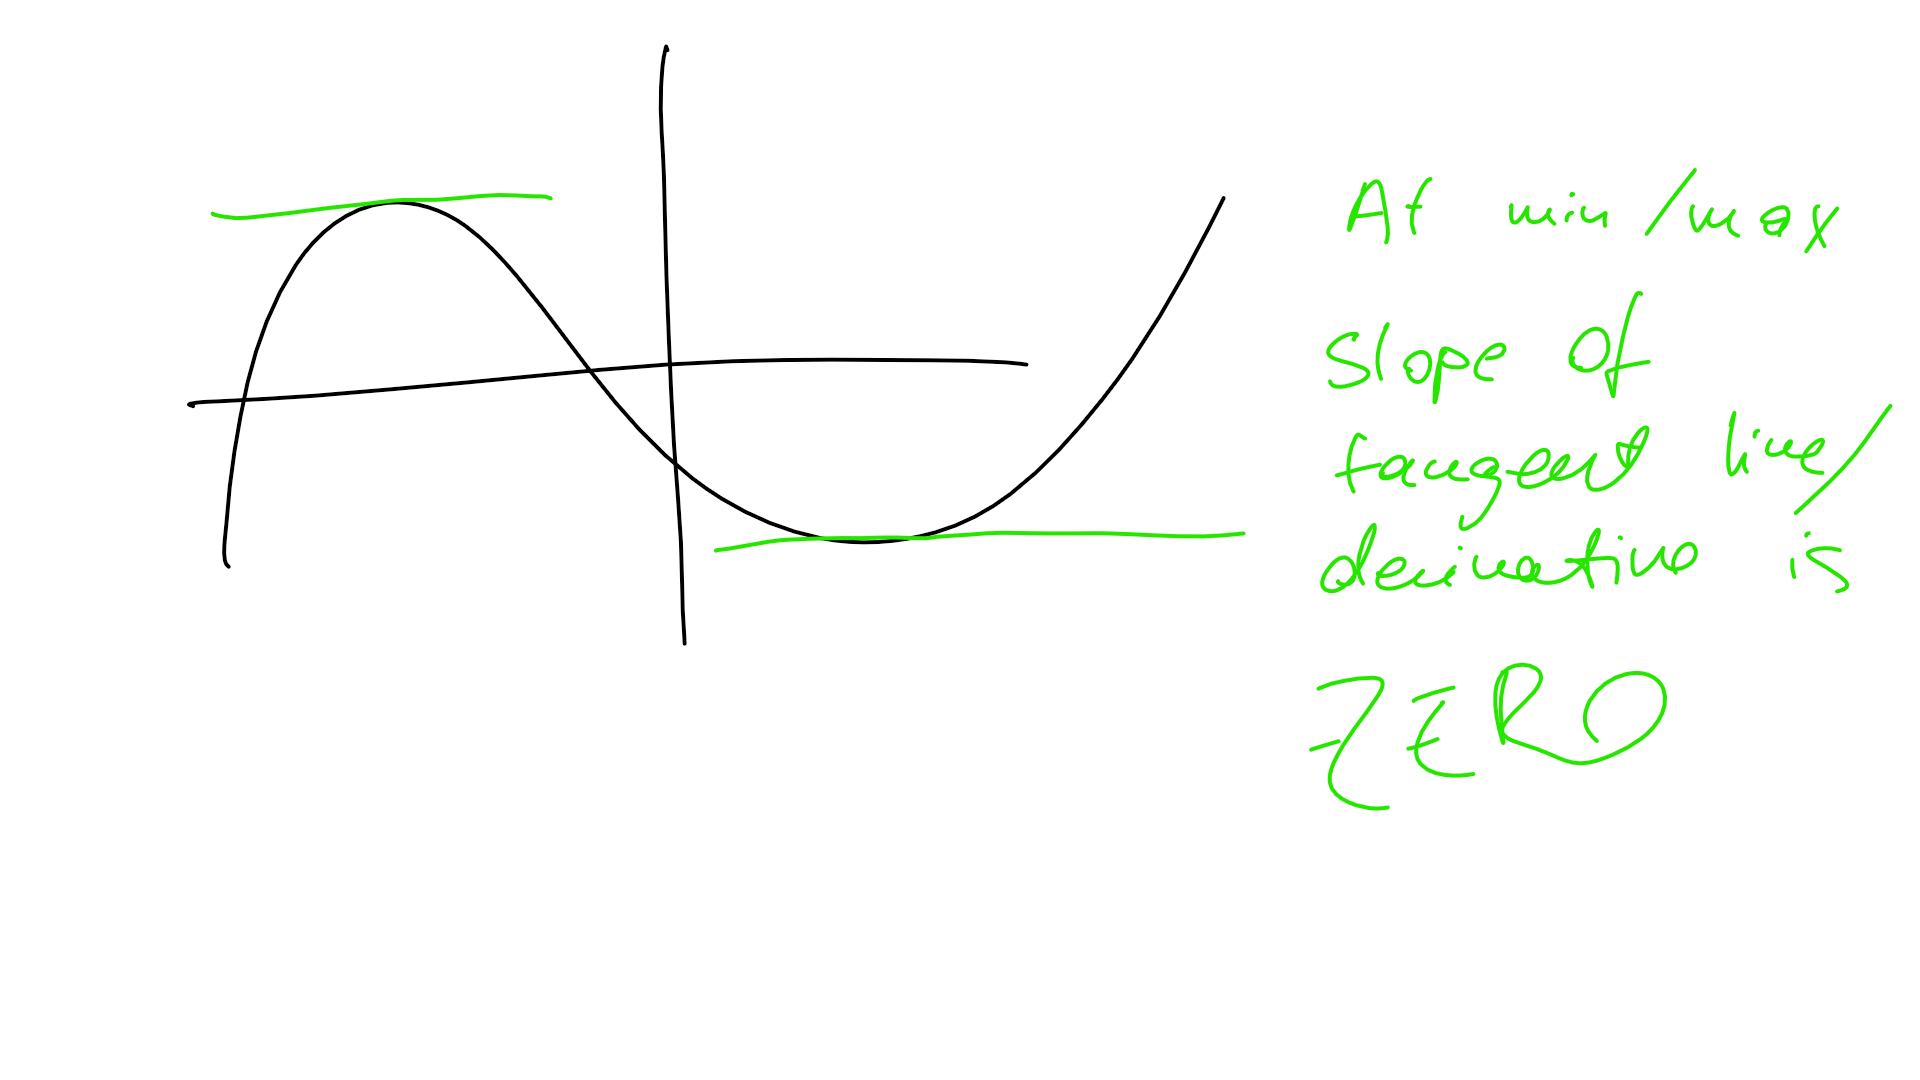 At min/max
slope of
tangent line/
derivative is
ZERO